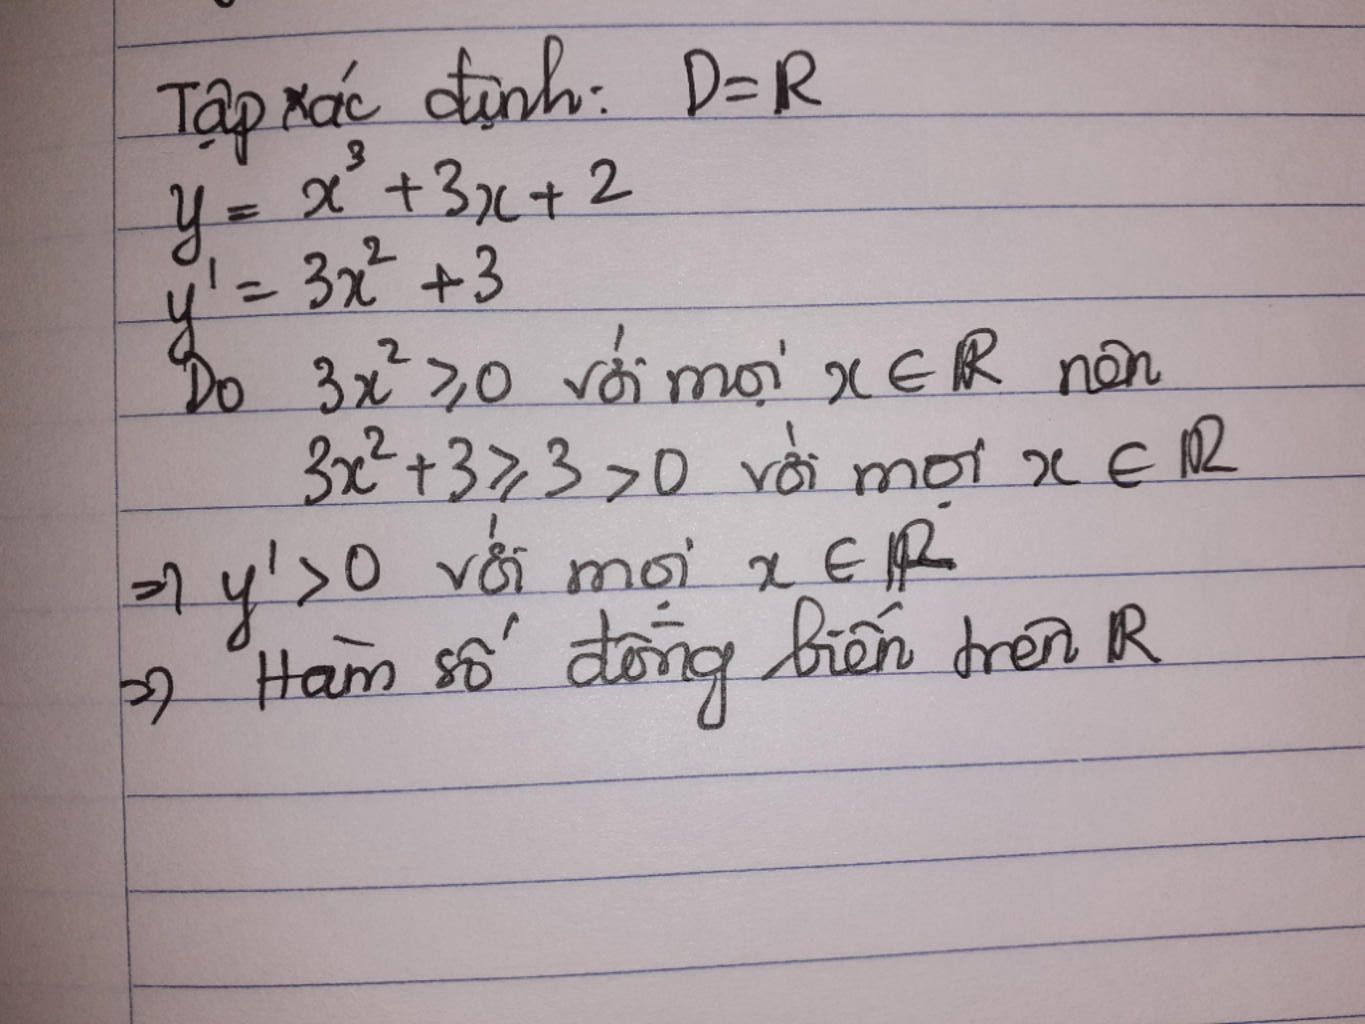 Tập xác định: D=ℝ
y = x³ + 3x + 2
y' = 3x² + 3
Do 3x² ⩾ 0 với mọi x ∈ ℝ nên
3x² + 3 ⩾ 3 > 0 với mọi x ∈ ℝ
⇒ y' > 0 với mọi x ∈ ℝ
⇒ Hàm số đồng biến trên ℝ